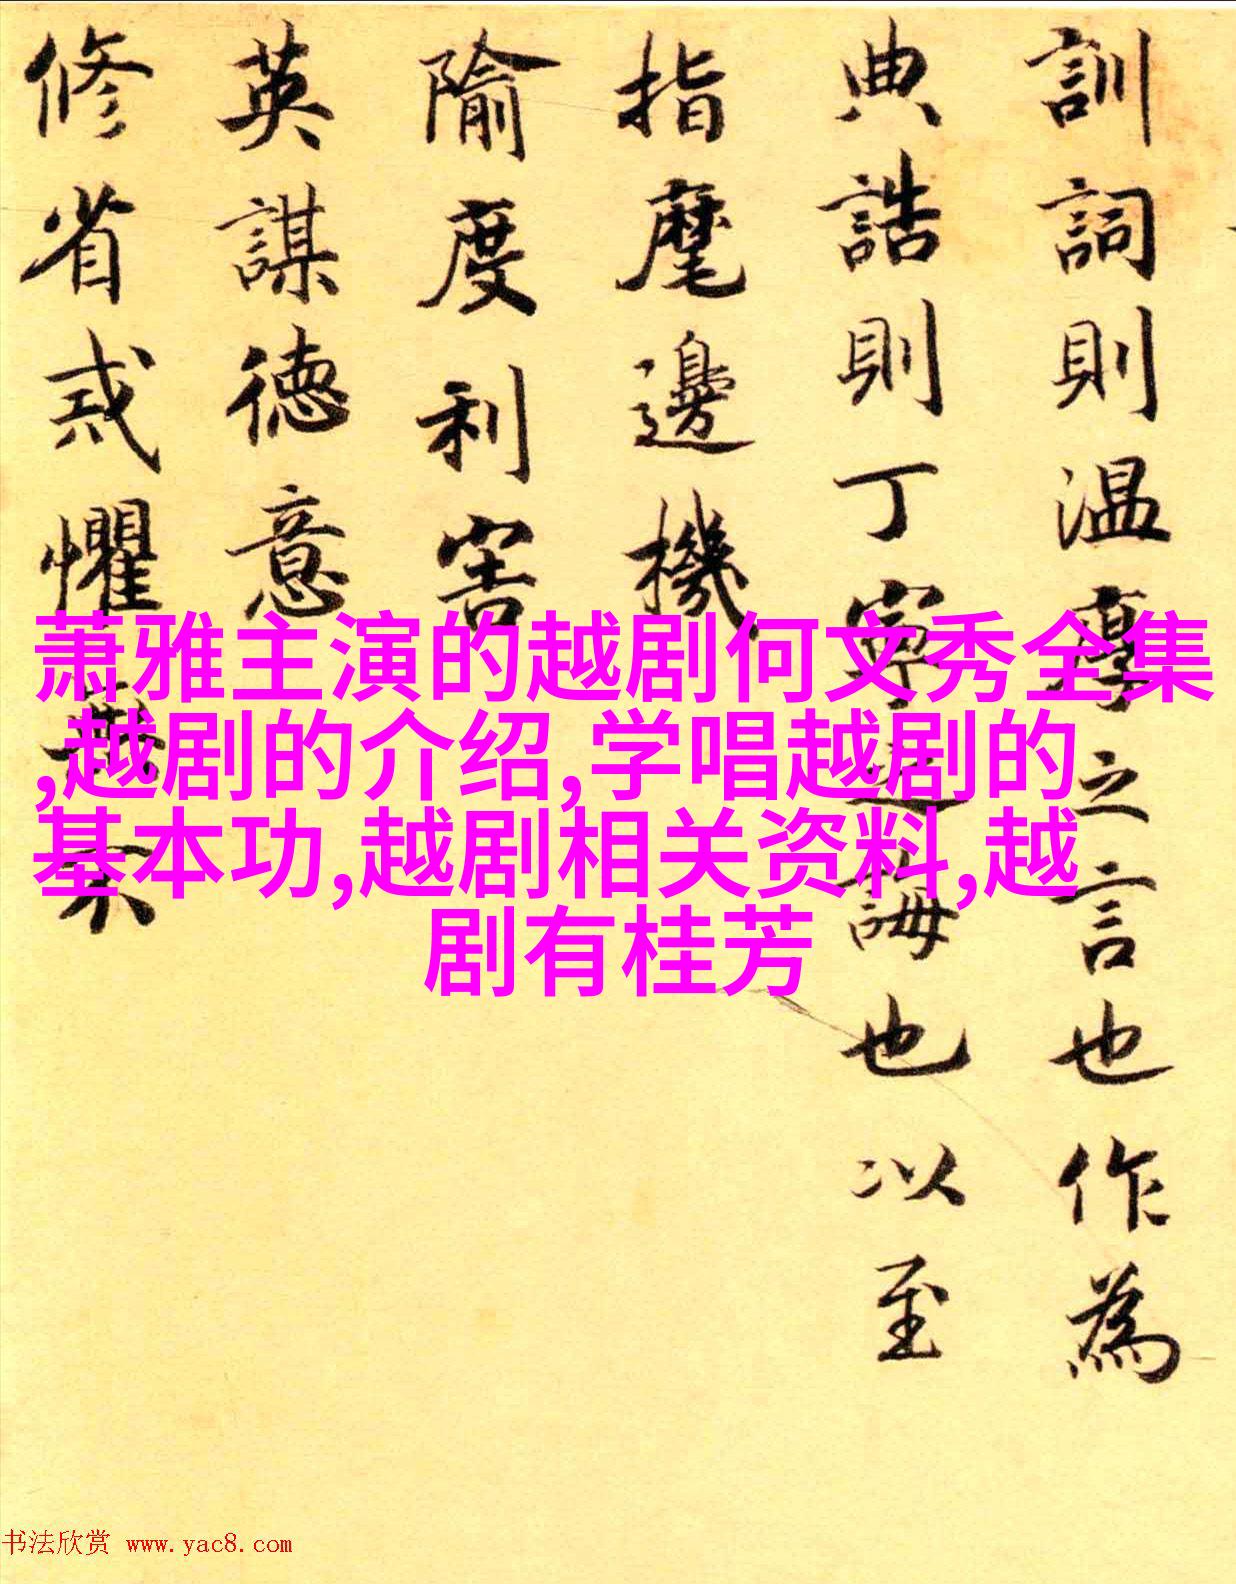 訓詞則温厚之言也作為
典誥則丁寧之誨也以至
指麾邊機
隃度利害
英謀德意
修省戒懼
萧雅主演的越剧何文秀全集
,越剧的介绍,学唱越剧的
基本功,越剧相关资料,越
剧有桂芳
书法欣赏 www.yac8.com